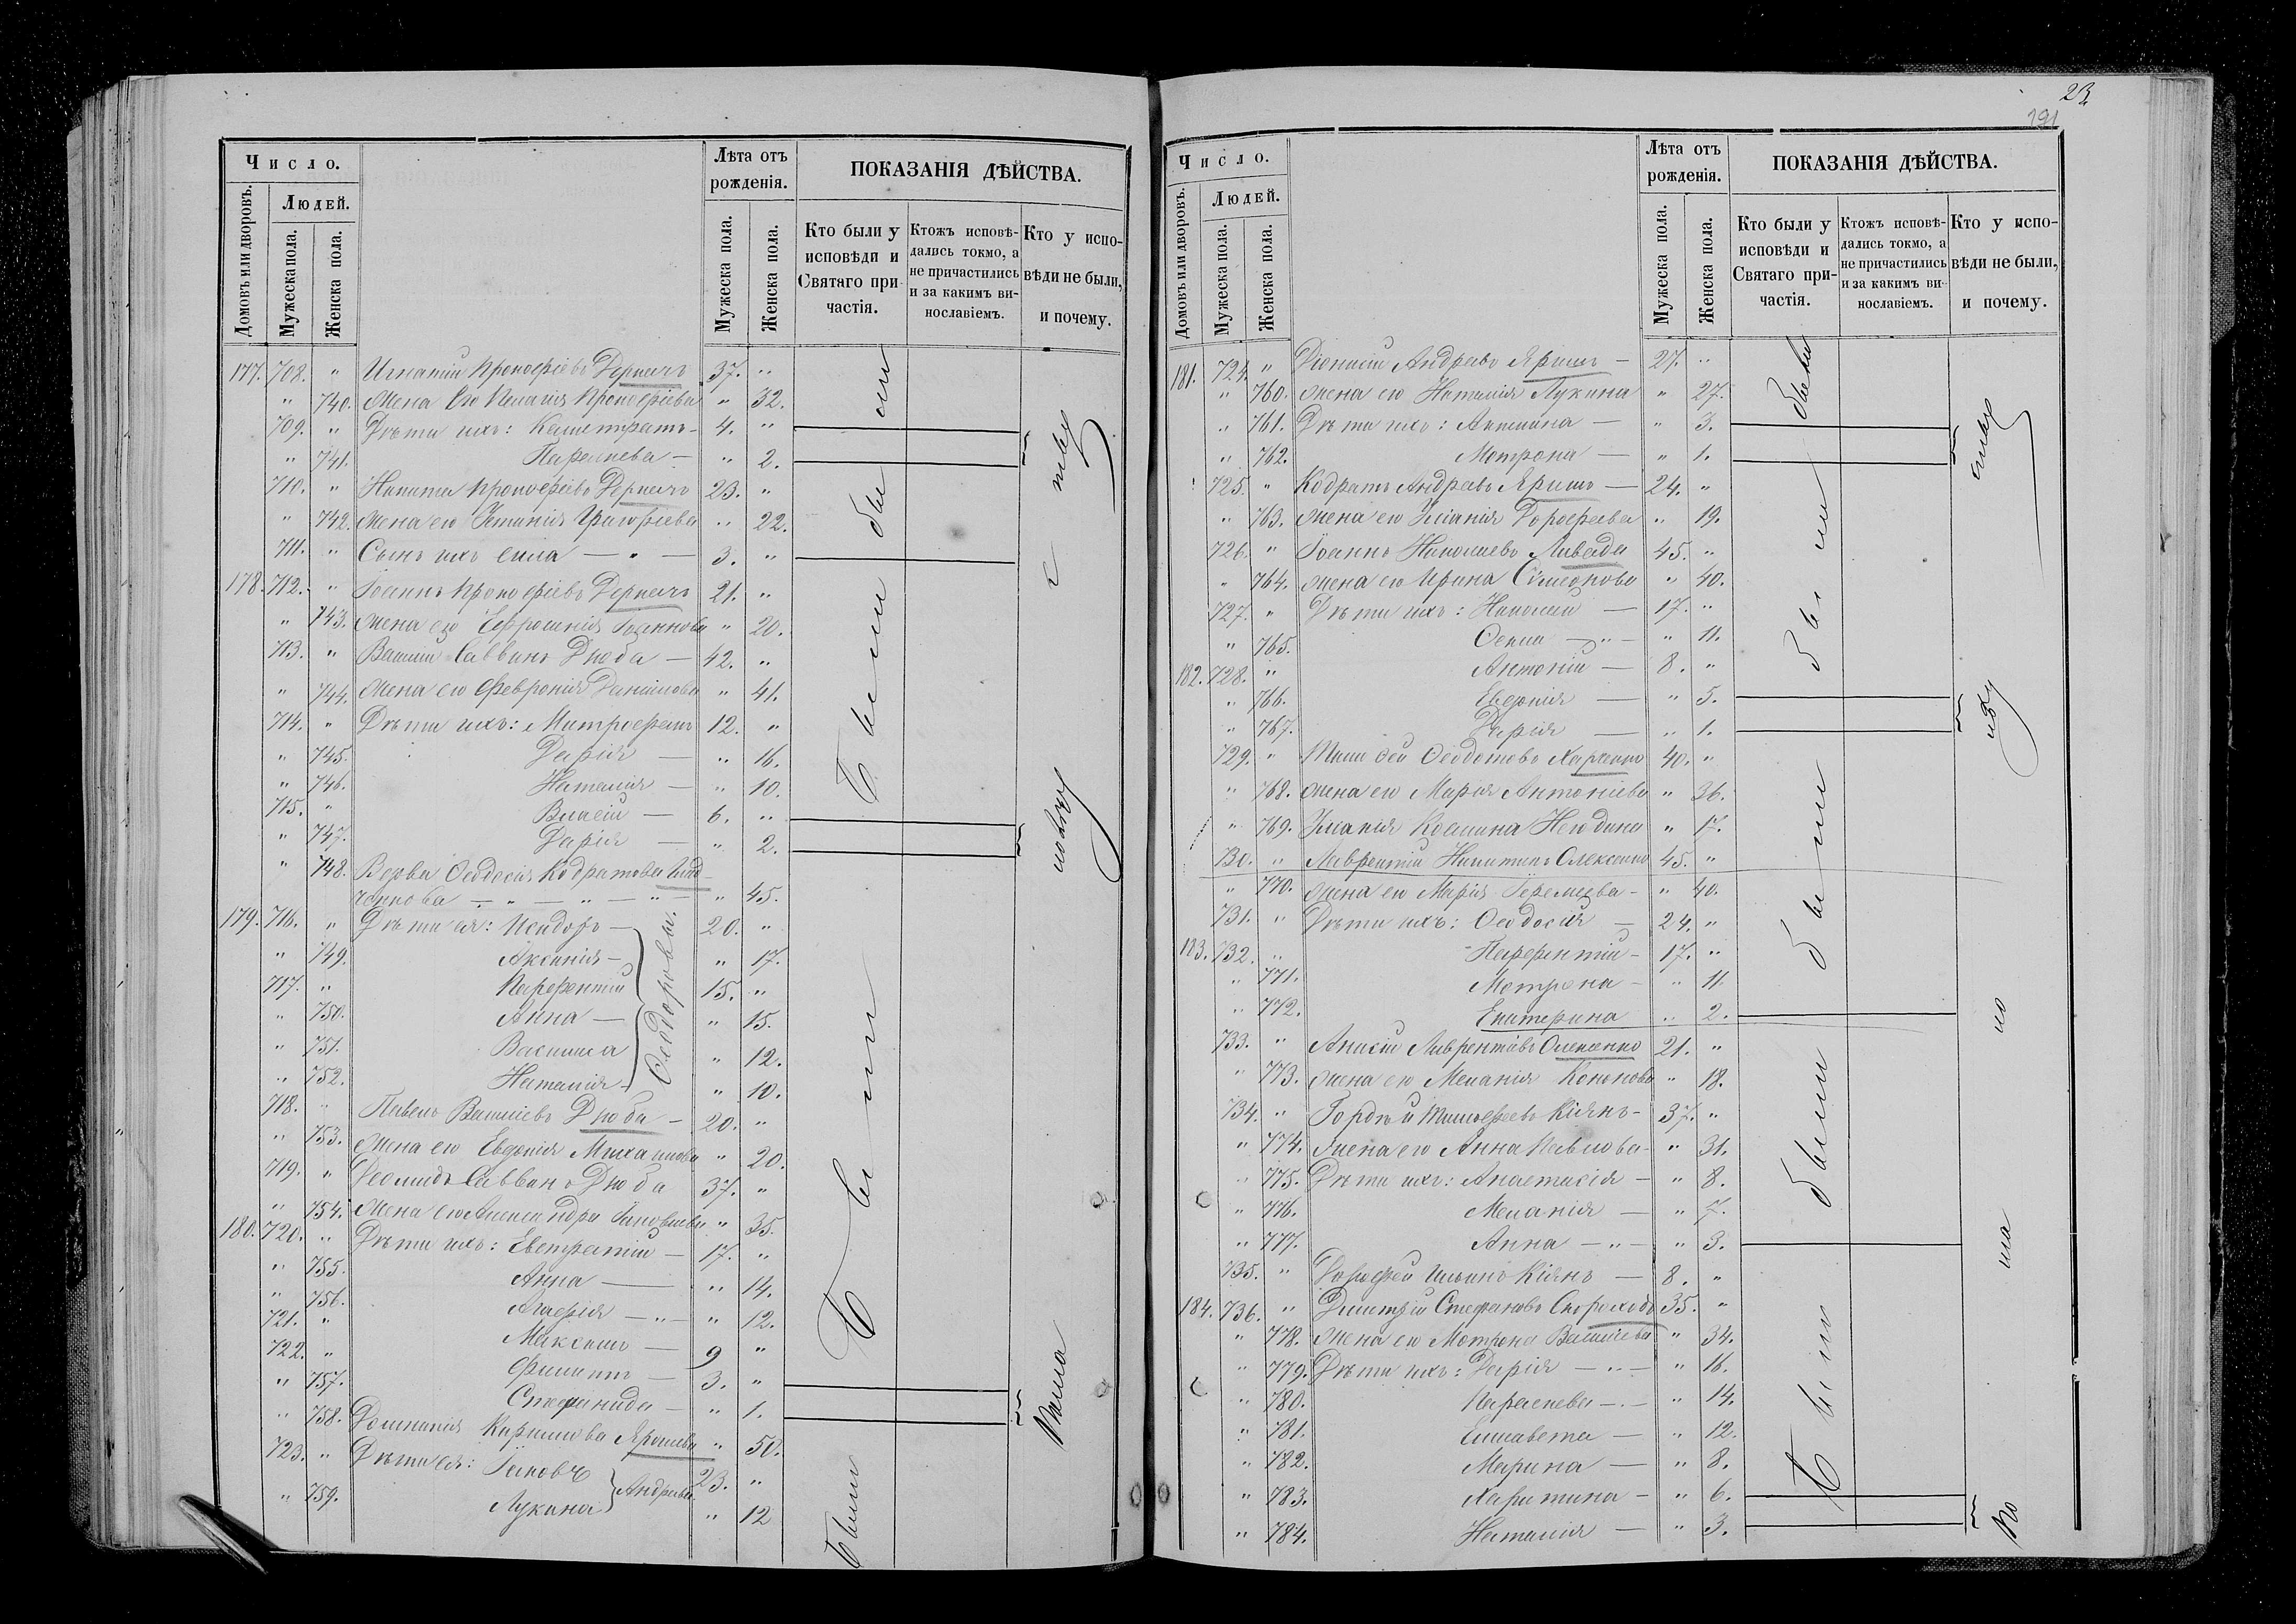 Число.
Домовъ или дворовъ.
Людей.
Мужеска пола.
Женска пола.
Лѣта отъ рожденія.
Мужеска пола.
Женска пола.
ПОКАЗАНІЯ ДѢЙСТВА.
Кто были у исповѣди и Святаго причастія.
Ктожъ исповѣдались токмо, а не причастились и за какимъ винославіемъ.
Кто у исповѣди не были, и почему.
177. 708. " Игнатій Прокофіевъ Дергачъ 37. "
" 740. Жена его Пелагія Прокофіева " 32.
709. " Дѣти ихъ: Калистратъ 4. "
" 741. Параскева " 2.
710. " Никита Прокофіевъ Дергачъ 23. "
" 742. Жена его Григоріева " 22.
711. " Сынъ ихъ Сила 3. "
178. 712. " Іоаннъ Прокофіевъ Дергачъ 21. "
" 743. Жена его Ефросинія Іоаннова " 20.
713. " Василій Саввинъ Дзюба 42. "
" 744. Жена его Февронія Даніилова " 41.
714. " Дѣти ихъ: Митрофанъ 12. "
" 745. Дарія " 16.
" 746. Наталія " 10.
715. " Власій 6. "
" 747. Дарія " 2.
" 748. Вдова Ѳеодосія Кодратова
" 45.
179. 716. " Дѣти ея: Исидоръ 20. "
" 749. Аксинія " 17.
717. " Парфентій 15. "
" 750. Анна " 15.
" 751. Василиса " 12.
" 752. Наталія " 10.
Ѳеодоровы.
718. " Павелъ Василіевъ Дзюба 20. "
" 753. Жена его Евдокія Михаилова " 20.
719. " Саввинъ Дзюба 37. "
" 754. Жена его Александра " 35.
180. 720. " Дѣти ихъ: Евстратій 17. "
" 755. Анна " 14.
" 756. Агафія " 12.
721. " Максимъ 9 "
722. " Филиппъ 3. "
" 757. Стефанида " 1.
" 758. Домникія Кириллова " 50.
723. " Дѣти ея: Іаковъ 23. "
" 759. Лукина " 12
Андреевы
Были
23
191
Число.
Домовъ или дворовъ.
Людей.
Мужеска пола.
Женска пола.
Лѣта отъ рожденія.
Мужеска пола.
Женска пола.
ПОКАЗАНІЯ ДѢЙСТВА.
Кто были у исповѣди и Святаго причастія.
Ктожъ исповѣдались токмо, а не причастились и за какимъ винославіемъ.
Кто у исповѣди не были, и почему.
181. 724. " Діонисій Андреевъ Яришъ 27. "
" 760. Жена его Наталія Лукина " 27.
" 761. Дѣти ихъ: Акилина " 3.
" 762. Мотрона " 1.
725. " Кодратъ Андреевъ Яришъ 24. "
" 763. Жена его Дорофеева " 19.
726. " Іоаннъ Николаевъ Ливада 45. "
" 764. Жена его Ирина Сімеонова " 40.
727. " Дѣти ихъ: Николай 17. "
" 765. " 11.
182. 728. " Антоній 8. "
" 766. Евдокія " 5.
" 767. Дарія " 1.
729. " Ѳеодотовъ Харченко 40. "
" 768. Жена его Марія Антоніева " 36.
" 769. Козмина " 17.
730. " Лаврентій Никитинъ Олексенко 45. "
" 770. Жена его Марія Іереміева " 40.
731. " Дѣти ихъ: Ѳеодосій 24. "
183. 732. " Парфентій 17. "
" 771. Мотрона " 11.
" 772. Екатерина " 2.
733. " Лаврентіевъ Олексенко 21. "
" 773. Жена его Меланія Кононова " 18.
734. " Гордѣй Тимофеевъ Кіянъ 37. "
" 774. Жена его Анна Павлова " 31.
" 775. Дѣти ихъ: Анастасія " 8.
" 776. Меланія " 7.
" 777. Анна " 3.
735. " Дорофей Ильинъ Кіянъ 8. "
184. 736. " Димитрій Стефановъ Скороходъ 35. "
" 778. Жена его Мотрона Василіева " 34.
" 779. Дѣти ихъ: Дарія " 16.
" 780. Параскева " 14.
" 781. Елисавета " 12.
" 782. Марина " 8.
" 783. Харитина " 6.
" 784. Наталія " 3.
Были